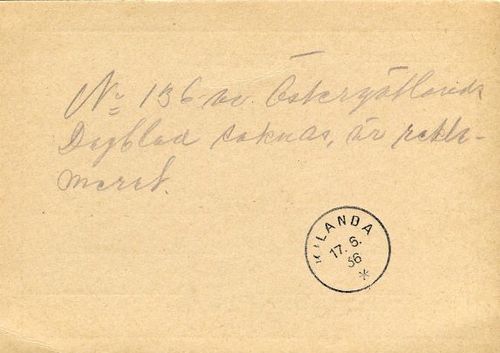 No 136 av Östergötlands
Dagblad saknas, är rekla-
merat.
KILANDA
17. 6.
36
*